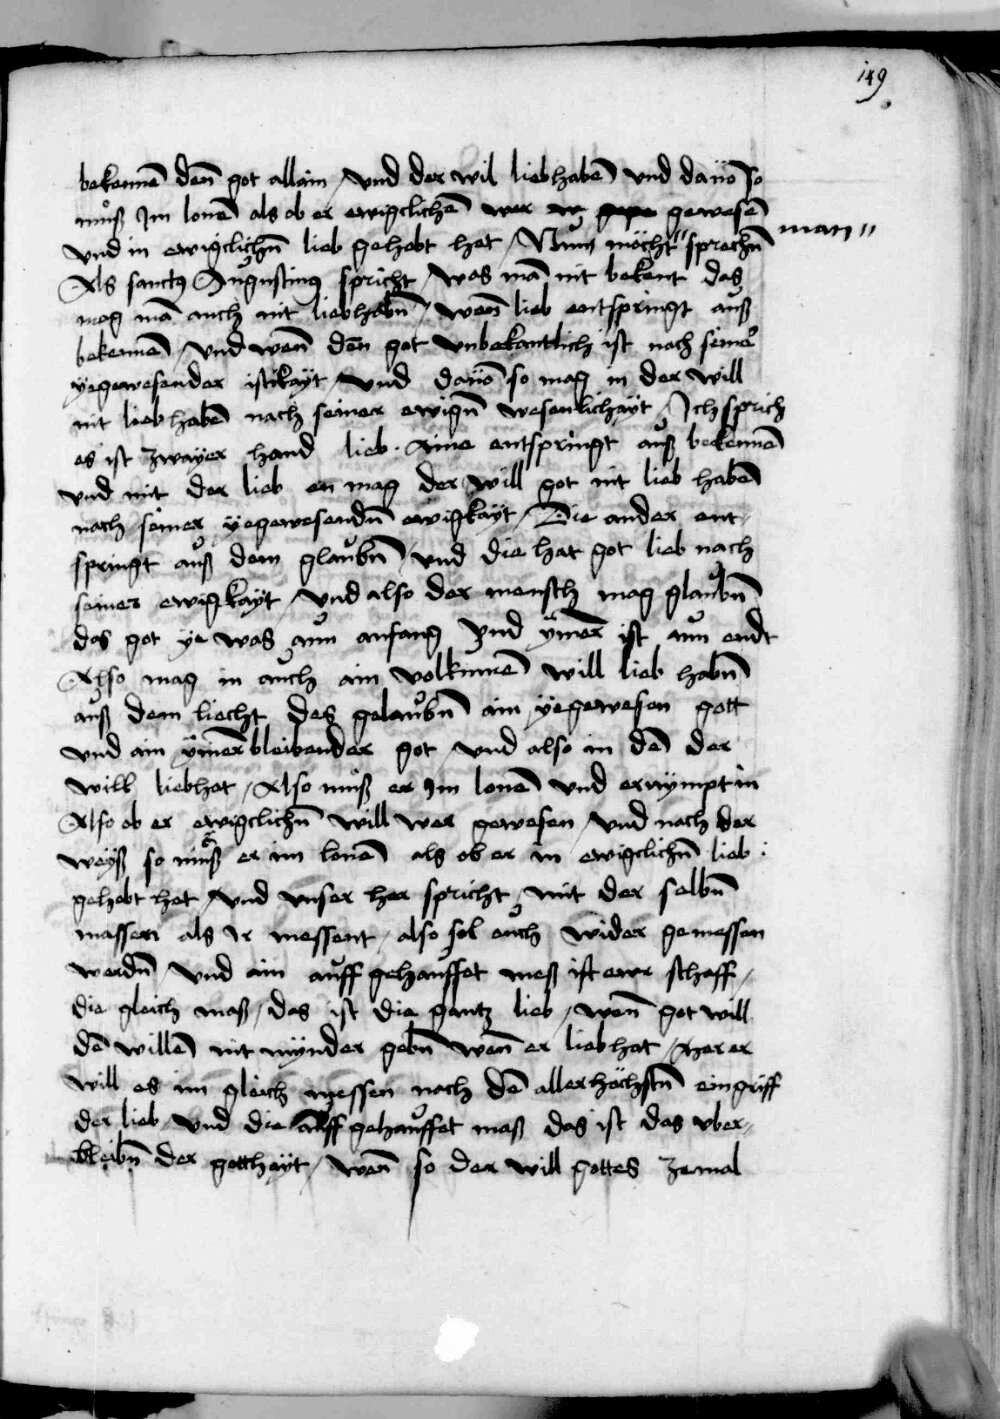 149
bekennē deñ got allain / vnd der wil liebhabē vnd dauō so
můß Jm lonē als ob er ewigclichē wer gewesē
vnd in ewigclichñ lieb gehebt het / Nun möcht sprechñ man
Als sanctus Augustinus spricht / was mā nit bekent das
mag mā auch nit liebhabñ / wenn lieb entspringt auß
bekennē / vnd wenn den got vnbekantlich ist nach seiner
yegewesender istikayt / vnd dauō so mag in der will
nit liebhabē nach seiner ewigñ wesenlichayt / Ich sprich
es ist zwayer hand lieb . Aine entspringt auß bekennē
vnd mit der lieb en mag der will got nit lieb habē
nach seiner yegewesendñ ewigkayt / Die ander ent
springt auß dem glaubñ / vnd die hat got lieb nach
seiner ewigkayt / vnd also der mensch mag glaubñ
das got ye was ann anfang vnd ymer ist ann endt
Also mag in auch ain volkumē will lieb habñ
auß dem liecht des gelaubñ ain yegewesen gott
vnd ain ymerbleibender got / vnd also in dē der
will liebhat / Also můß er Jm lonē vnd er nympt in
Also ob er ewigclichñ will wer gewesen / vnd nach der
weyß so můß er im lonē als ob er in ewigclichñ lieb :
gehebt het / vnd vnser her spricht / mit der selbñ
massen als Ir messent / also sol euch wider gemessen
werdñ / vnd ain auff gehauffet meß ist ewr schoff /
die gleich maß / das ist die gantz lieb / wenn got will
dē willē nit mynder gebñ wenn er liebhat / Aber er
will es im gleich messen nach dē allerhöchstñ eingriff
der lieb / vnd die auff gehauffet maß das ist das vber
bleibñ der gotthayt / wenn so der will gottes zemal